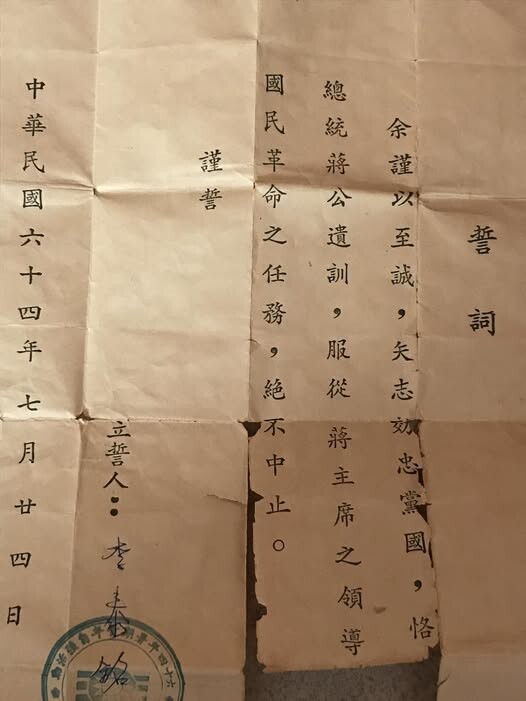 誓詞
余謹以至誠，矢志効忠黨國，恪
總統蔣公遺訓，服從 蔣主席之領導
國民革命之任務，絕不中止。
謹誓
立誓人：李泰銘
中華民國六十四年七月廿四日